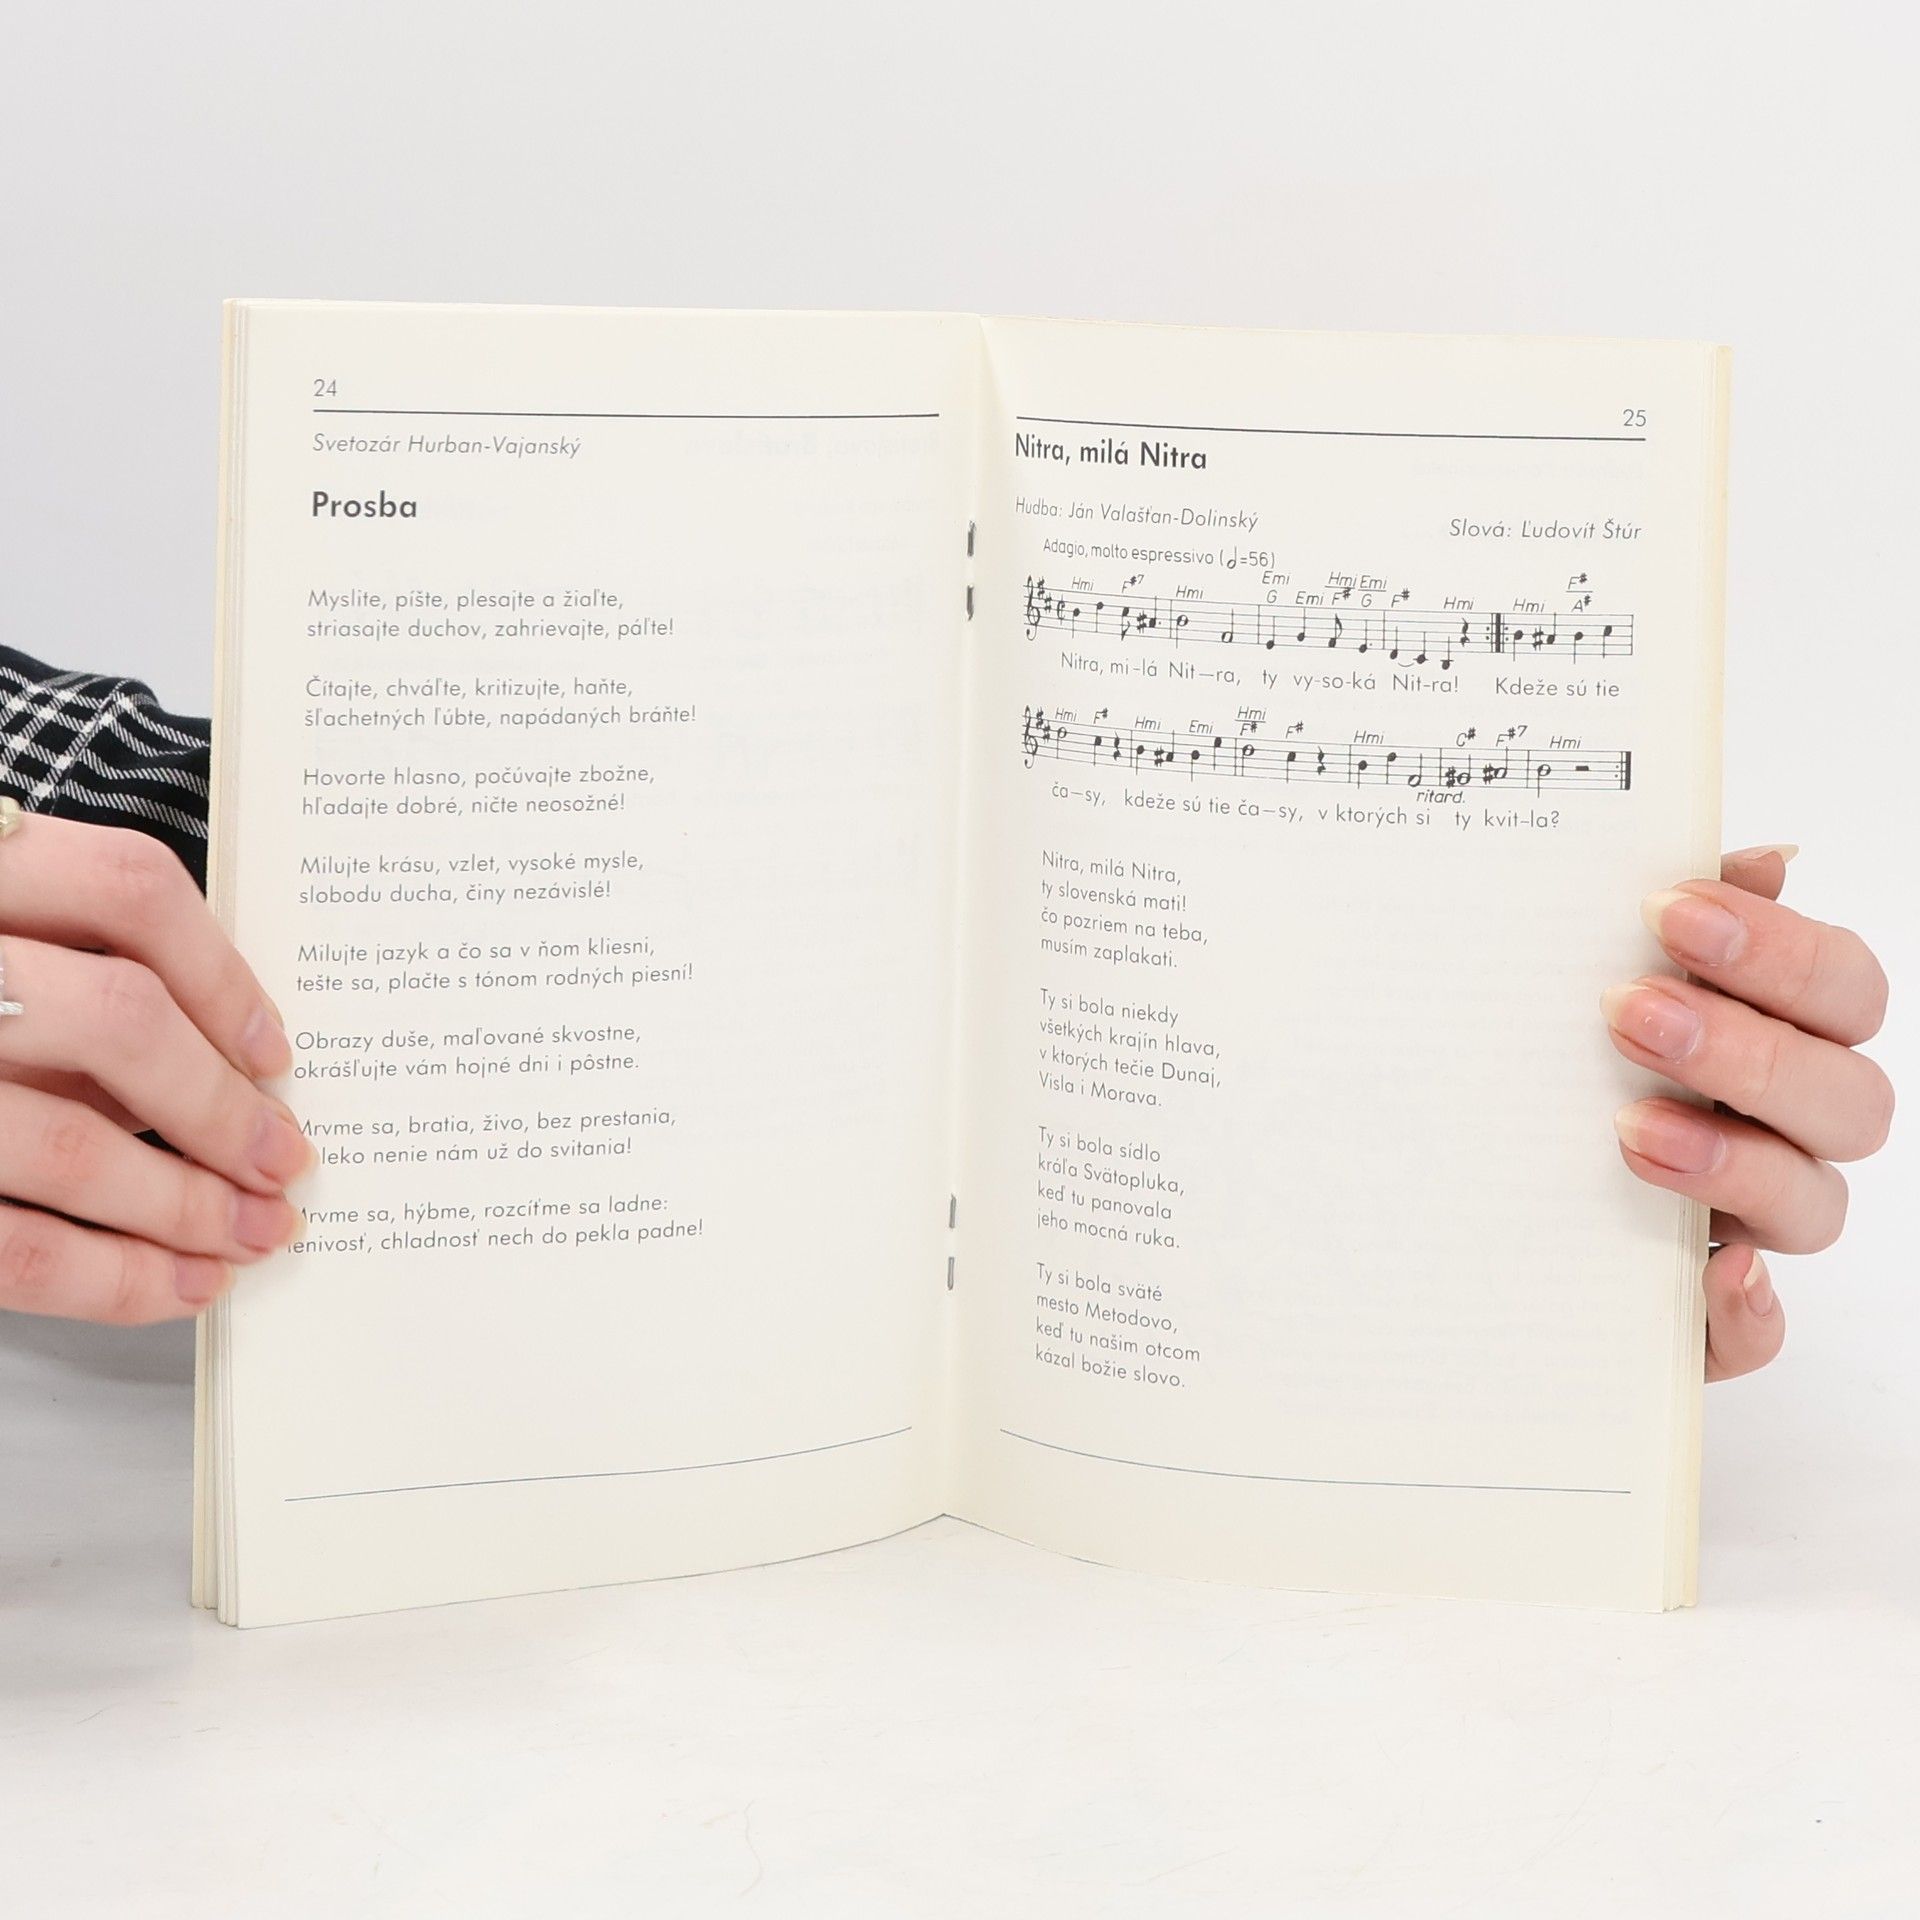 24
Svetozár Hurban-Vajanský
Prosba
Myslite, píšte, plesajte a žiaľte,
striasajte duchov, zahrievajte, páľte!
Čítajte, chváľte, kritizujte, haňte,
šľachetných ľúbte, napádaných bráňte!
Hovorte hlasno, počúvajte zbožne,
hľadajte dobré, ničte neosožné!
Milujte krásu, vzlet, vysoké mysle,
slobodu ducha, činy nezávislé!
Milujte jazyk a čo sa v ňom kliesni,
tešte sa, plačte s tónom rodných piesní!
Obrazy duše, maľované skvostne,
okrášľujte vám hojné dni i pôstne.
Mrvme sa, bratia, živo, bez prestania,
leko nenie nám už do svitania!
Mrvme sa, hýbme, rozcíťme sa ladne:
lenivosť, chladnosť nech do pekla padne!
25
Nitra, milá Nitra
Hudba: Ján Valašťan-Dolinský Slová: Ľudovít Štúr
Adagio, molto espressivo (𝅗𝅥=56)
Hmi F#7 Hmi Emi/G Emi Hmi/F# Emi/G F# Hmi Hmi F#/A#
Nitra, mi-lá Nit—ra, ty vy-so-ká Nit-ra! Kdeže sú tie
Hmi F# Hmi Emi Hmi/F# F# Hmi C# F#7 Hmi
ritard.
ča—sy, kdeže sú tie ča—sy, v ktorých si ty kvit-la?
Nitra, milá Nitra,
ty slovenská mati!
čo pozriem na teba,
musím zaplakati.
Ty si bola niekdy
všetkých krajín hlava,
v ktorých tečie Dunaj,
Visla i Morava.
Ty si bola sídlo
kráľa Svätopluka,
keď tu panovala
jeho mocná ruka.
Ty si bola sväté
mesto Metodovo,
keď tu našim otcom
kázal božie slovo.